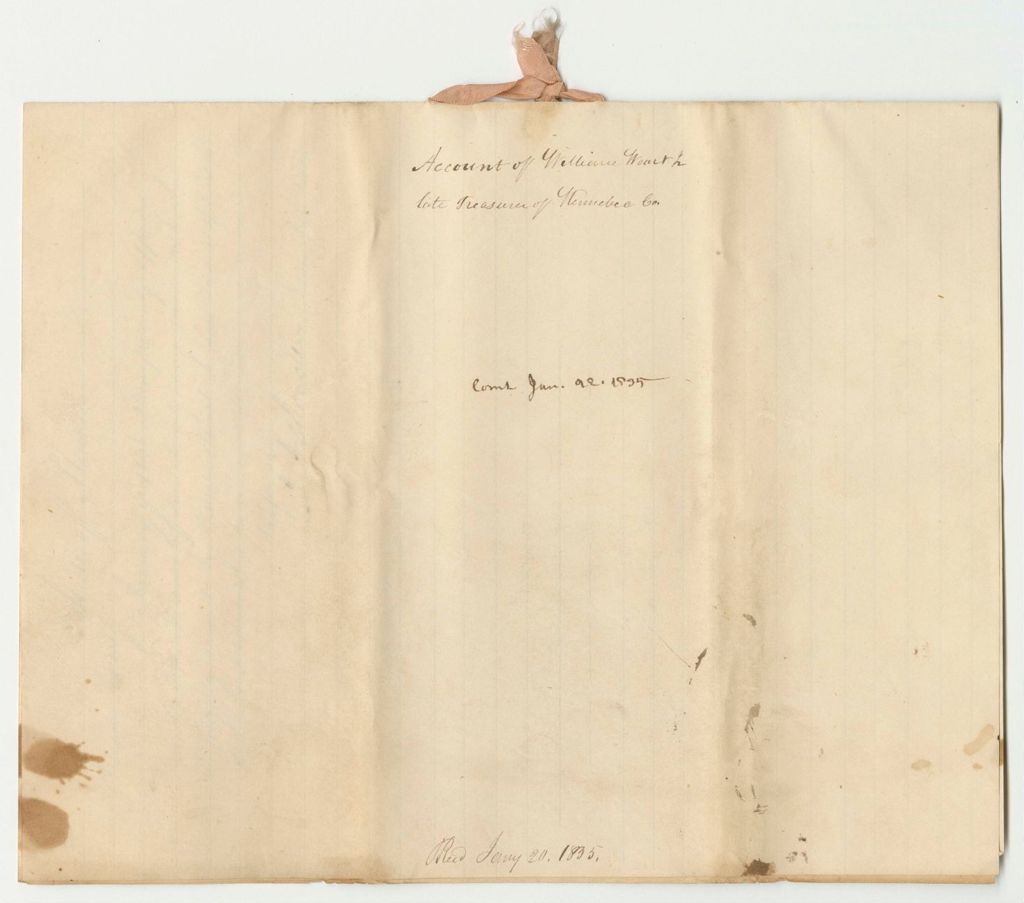 Account of William Woart Jr
late Treasurer of Kennebec Co.
Comt. Jan. 22. 1835
Recd Jany 20. 1835.